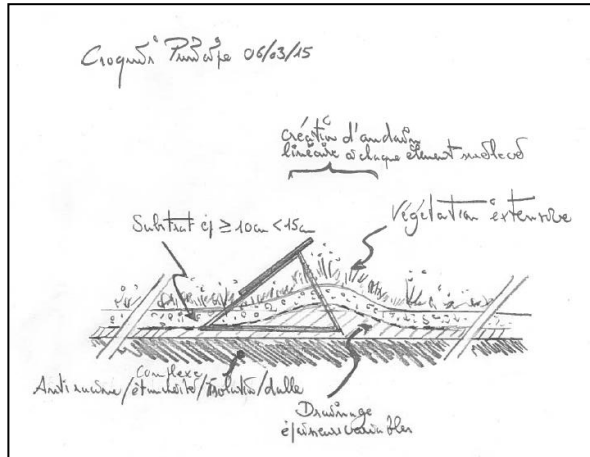 Croquis Principe 06/03/15
création d'andain
linéaire à chaque élément
Substrat ép ≥ 10cm < 15cm
Végétation extensive
Complexe
Anti racine/étanchéité/isolation/dalle
Drainage
épaisseurs variables